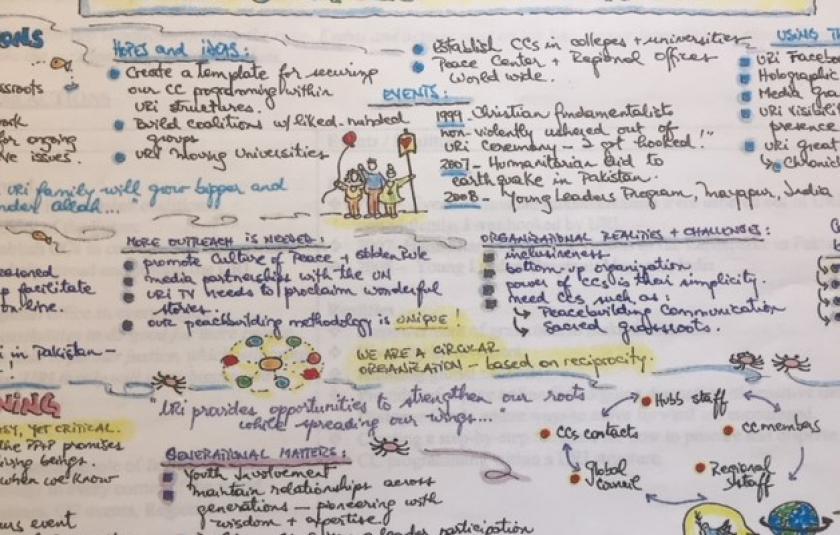 ONS
ssroots
ork
for ongoing
ve issues.
URi family will grow bigger and
nder allah..."
HOPES and iDEAS:
Create a template for securing
our CC programming within
URi structures.
Build coalitions w/ liked-minded
groups
URi Young Universities
Establish CCs in colleges + universities
Peace Center + Regional Offices
World wide.
EVENTS:
1999 - Christian fundamentalists
non-violently ushered out of
URi ceremony - I got hooked!"
2007 - Humanitarian Aid to
earthquake in Pakistan.
2008 - Young Leaders Program, Mayapur, India
USING TH
URi Facebo
Holographic
Media gra
URi visibili
presence
URi great
Chronicl
easoned
p facilitate
on-line.
i in Pakistan -
!
MORE OUTREACH is NEEDED:
promote Culture of Peace + Golden Rule
media partnerships with the UN
URi TV needs to proclaim wonderful
stories.
our peacebuilding methodology is UNiQUE!
ORGANiZATiONAL REALiTiES + CHALLENGES:
inclusiveness
bottom-up organization
power of CCs is their simplicity.
need CCs such as:
Peacebuilding Communication
Sacred grassroots.
WE ARE A CiRCULAR
ORGANiZATiON - based on reciprocity.
NiNG
SY, YET CRiTiCAL.
the PPP promises
iving beings.
when we know
urs event
"URi provides opportunities to strengthen our roots
while spreading our wings..."
GENERATiONAL MATTERS:
Youth Involvement
maintain relationships across
generations - pioneering with
wisdom + expertise
leader participation
Hubb staff
CCs contacts
CC members
Global
Council
Regional
Staff